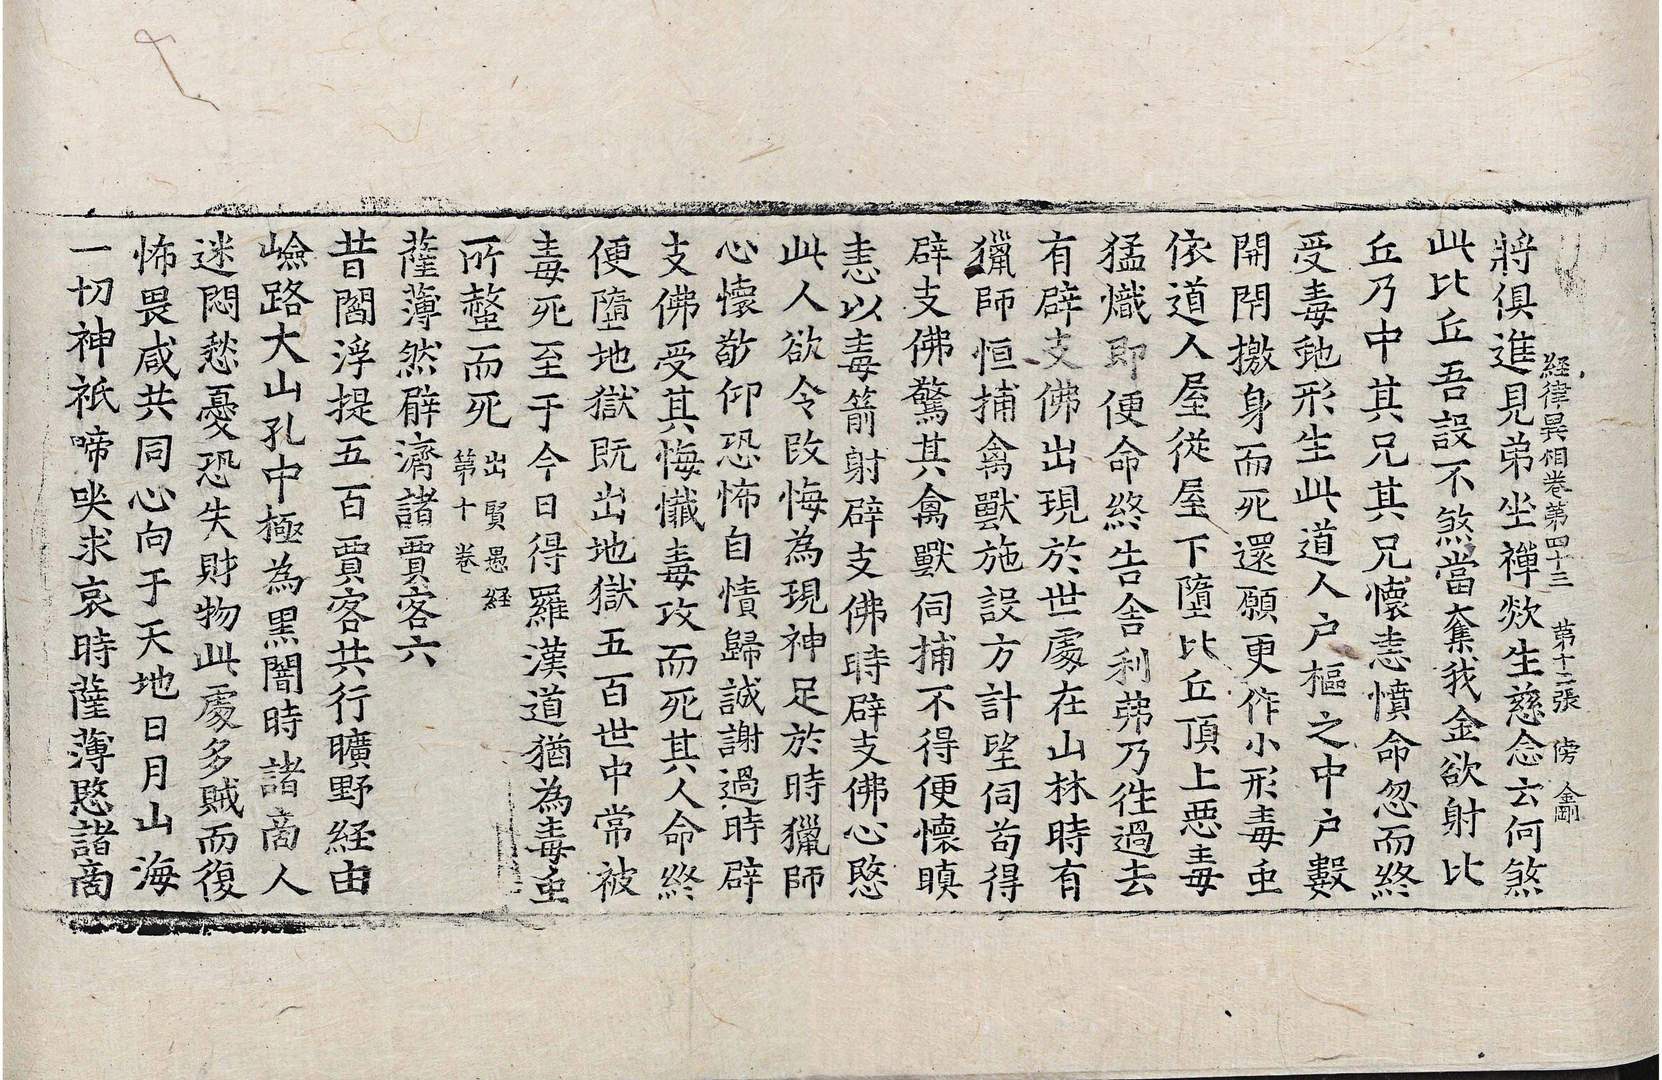 経律異相卷第四十三 第十二張 傍 金剛
將俱進見弟坐禪欻生慈念云何煞
此比丘吾設不煞當奪我金欲射比
丘乃中其兄其兄懷恚憤命忽而終
受毒虵形生此道人户樞之中户數
開閇撽身而死還願更作小形毒虫
依道人屋從屋下墮比丘頂上惡毒
猛熾即便命終告舍利弗乃往過去
有辟支佛出現於世處在山林時有
獵師恒捕禽獸施設方計望伺苟得
辟支佛驚其禽獸伺捕不得便懷瞋
恚以毒箭射辟支佛時辟支佛心愍
此人欲令改悔為現神足於時獵師
心懷敬仰恐怖自憒歸誠謝過時辟
支佛受其悔懺毒攻而死其人命終
便墮地獄既出地獄五百世中常被
毒死至于今日得羅漢道猶為毒虫
所螫而死 出賢愚経第十卷
薩薄然臂濟諸賈客六
昔閻浮提五百賈客共行曠野経由
嶮路大山孔中極為黒闇時諸商人
迷悶愁憂恐失財物此處多賊而復
怖畏咸共同心向于天地日月山海
一切神祇啼哭求哀時薩薄愍諸商